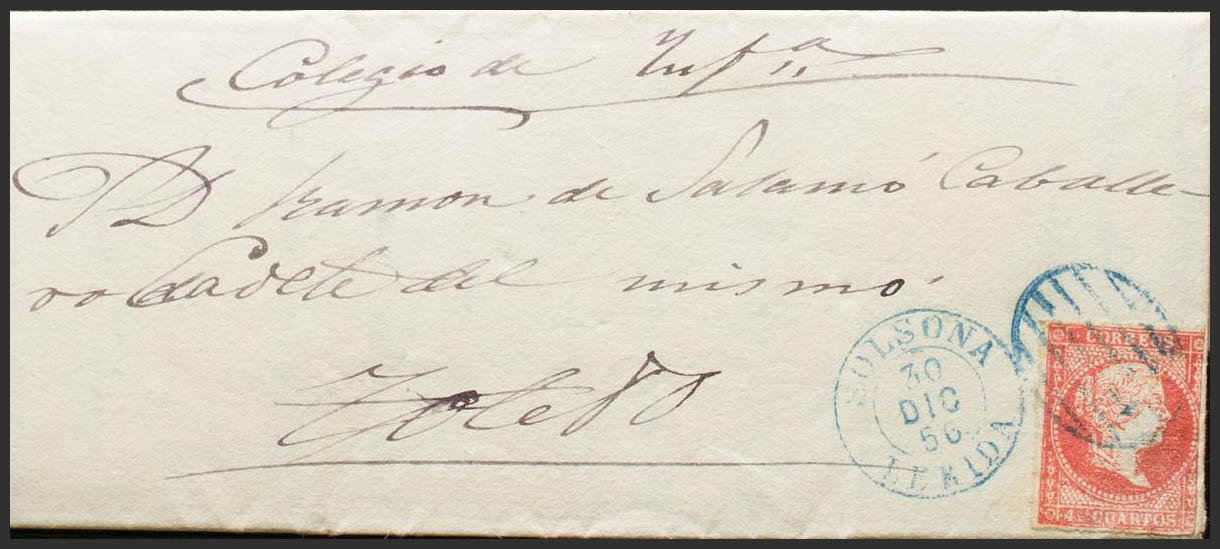 Colegio de Infª
A D Ramon de Salamó Caballe-
ro Cadete del mismo
Toledo
SOLSONA
30
DIC
56
LERIDA
CORREOS
4 CUARTOS